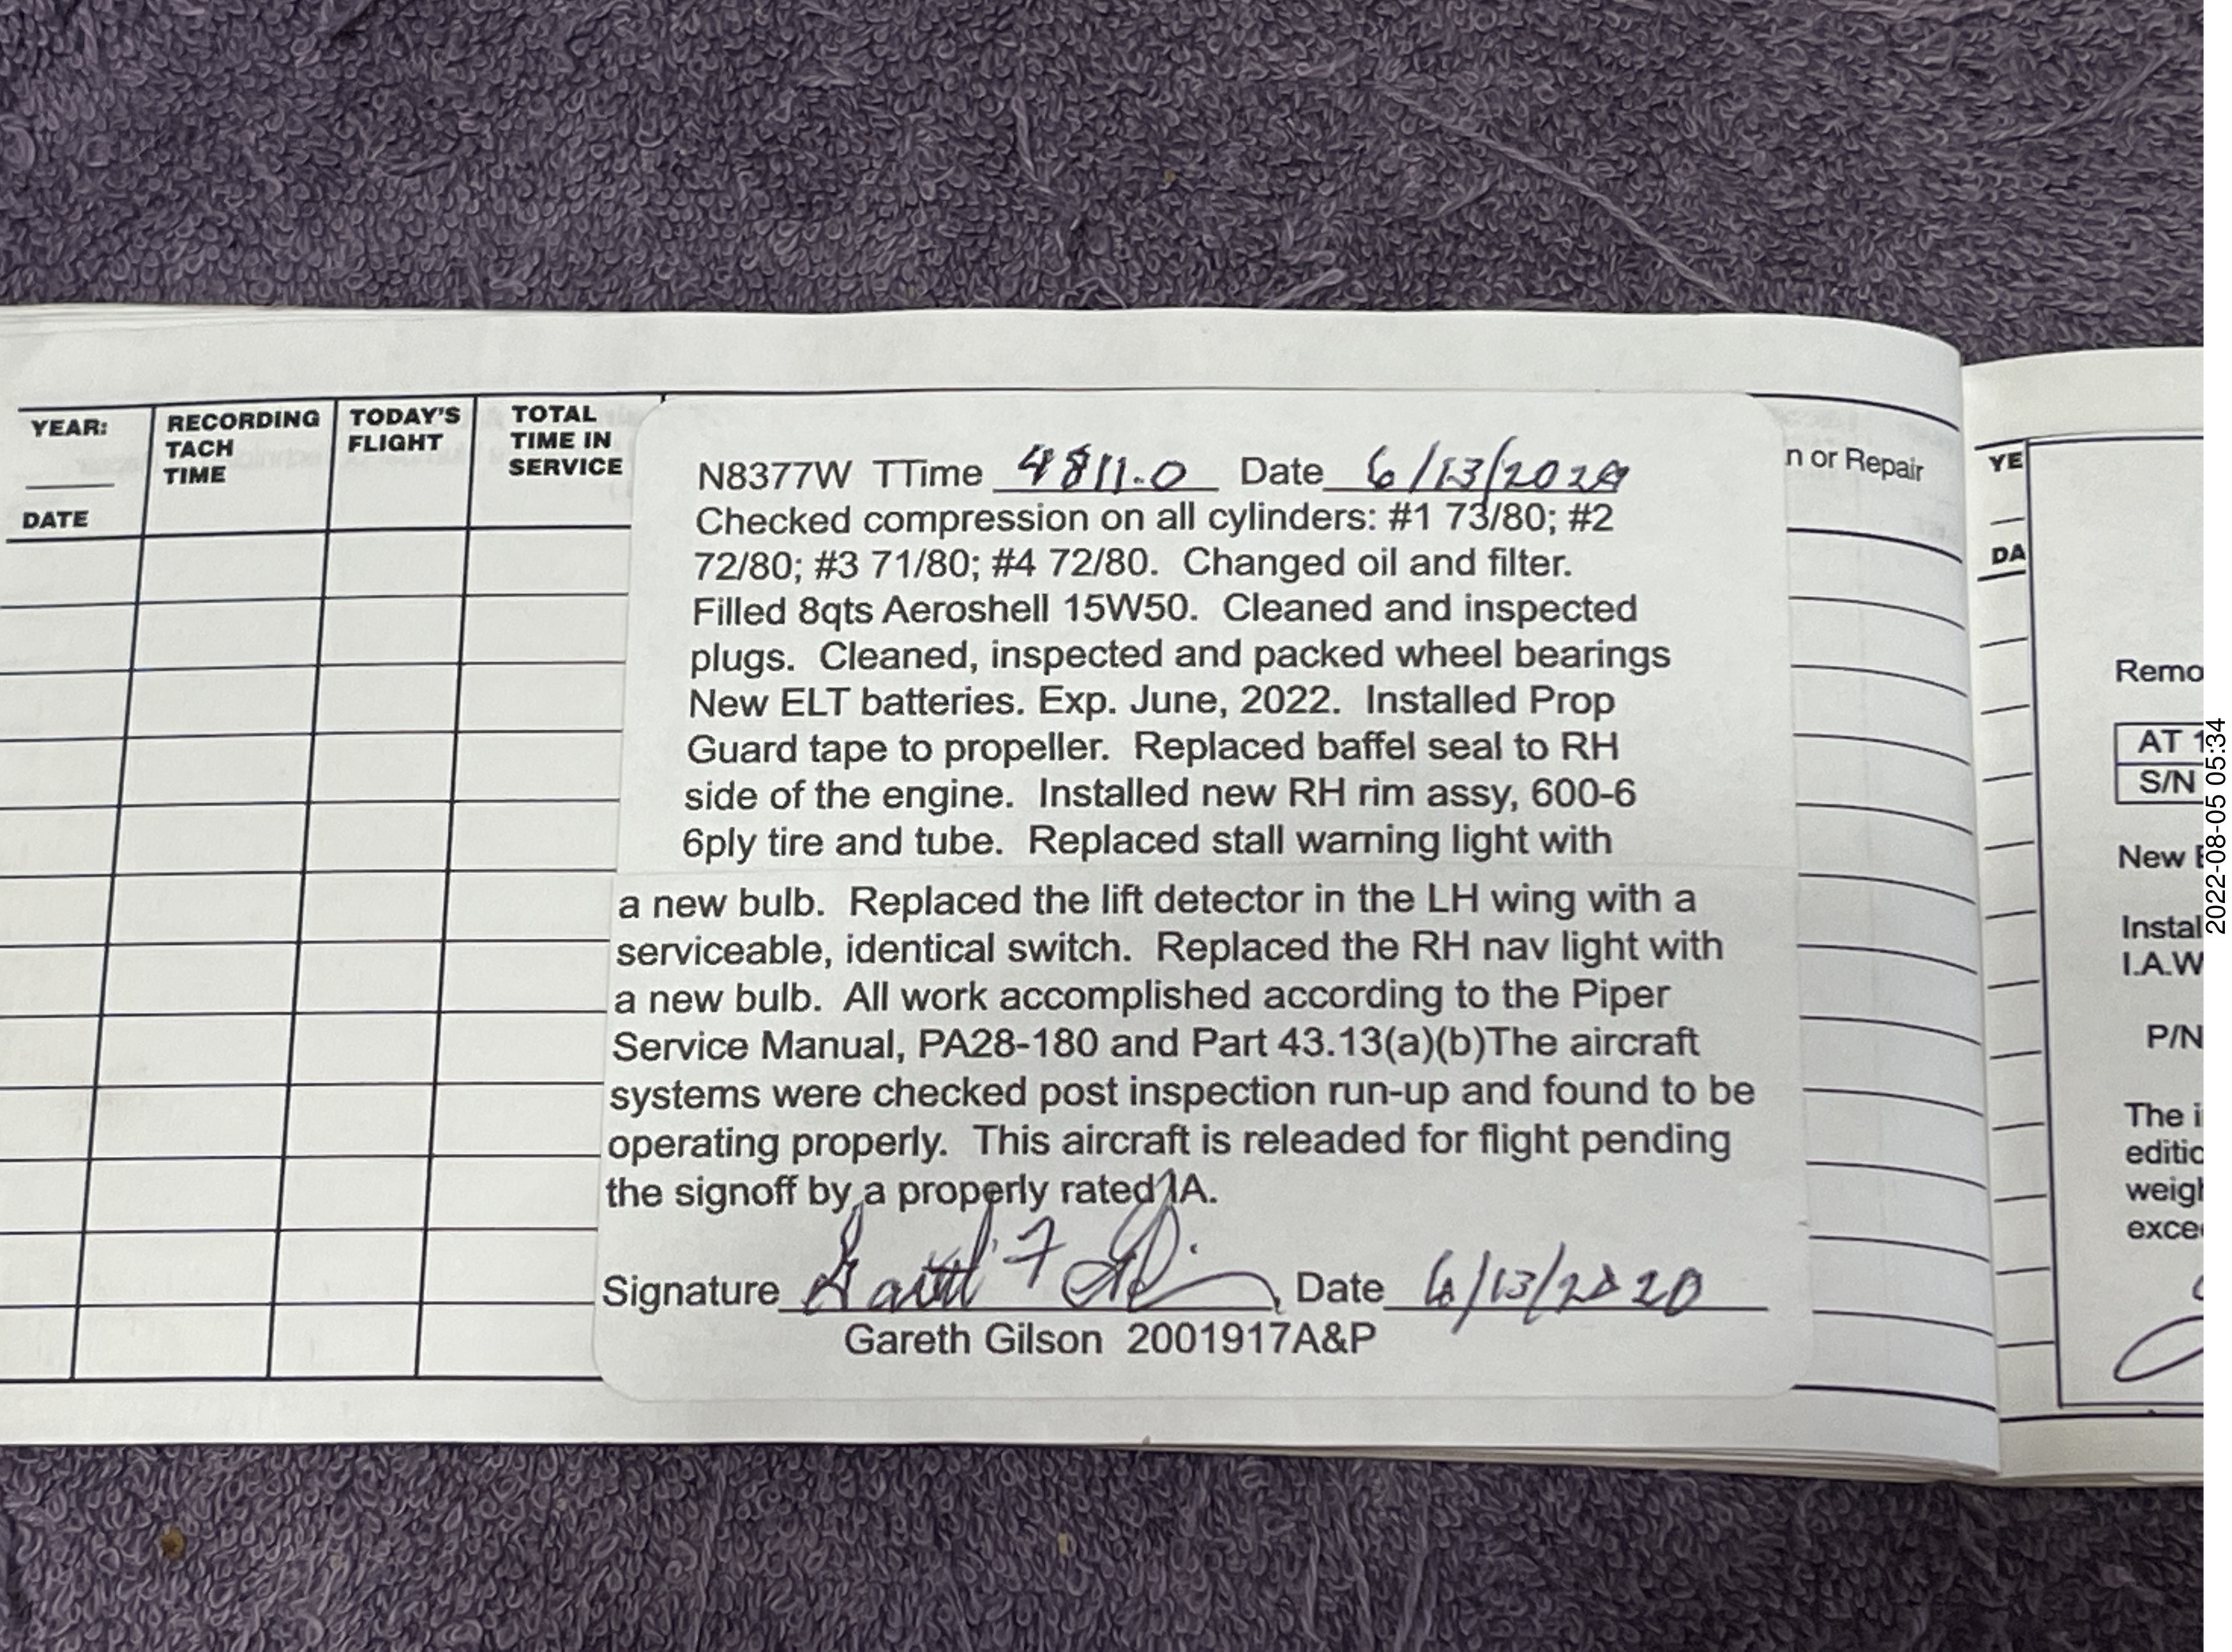 YEAR:
DATE
RECORDING
TACH
TIME
TODAY'S
FLIGHT
TOTAL
TIME IN
SERVICE
N8377W TTime 4811.0 Date 6/13/2020
Checked compression on all cylinders: #1 73/80; #2
72/80; #3 71/80; #4 72/80. Changed oil and filter.
Filled 8qts Aeroshell 15W50. Cleaned and inspected
plugs. Cleaned, inspected and packed wheel bearings
New ELT batteries. Exp. June, 2022. Installed Prop
Guard tape to propeller. Replaced baffel seal to RH
side of the engine. Installed new RH rim assy, 600-6
6ply tire and tube. Replaced stall warning light with
a new bulb. Replaced the lift detector in the LH wing with a
serviceable, identical switch. Replaced the RH nav light with
a new bulb. All work accomplished according to the Piper
Service Manual, PA28-180 and Part 43.13(a)(b)The aircraft
systems were checked post inspection run-up and found to be
operating properly. This aircraft is releaded for flight pending
the signoff by a properly rated IA.
Signature Date 6/13/2020
Gareth Gilson 2001917A&P
n or Repair
YE
DA
Remo
AT 1
S/N
New E
Instal
I.A.W
P/N
The i
editic
weigh
exce
2022-08-05 05:34